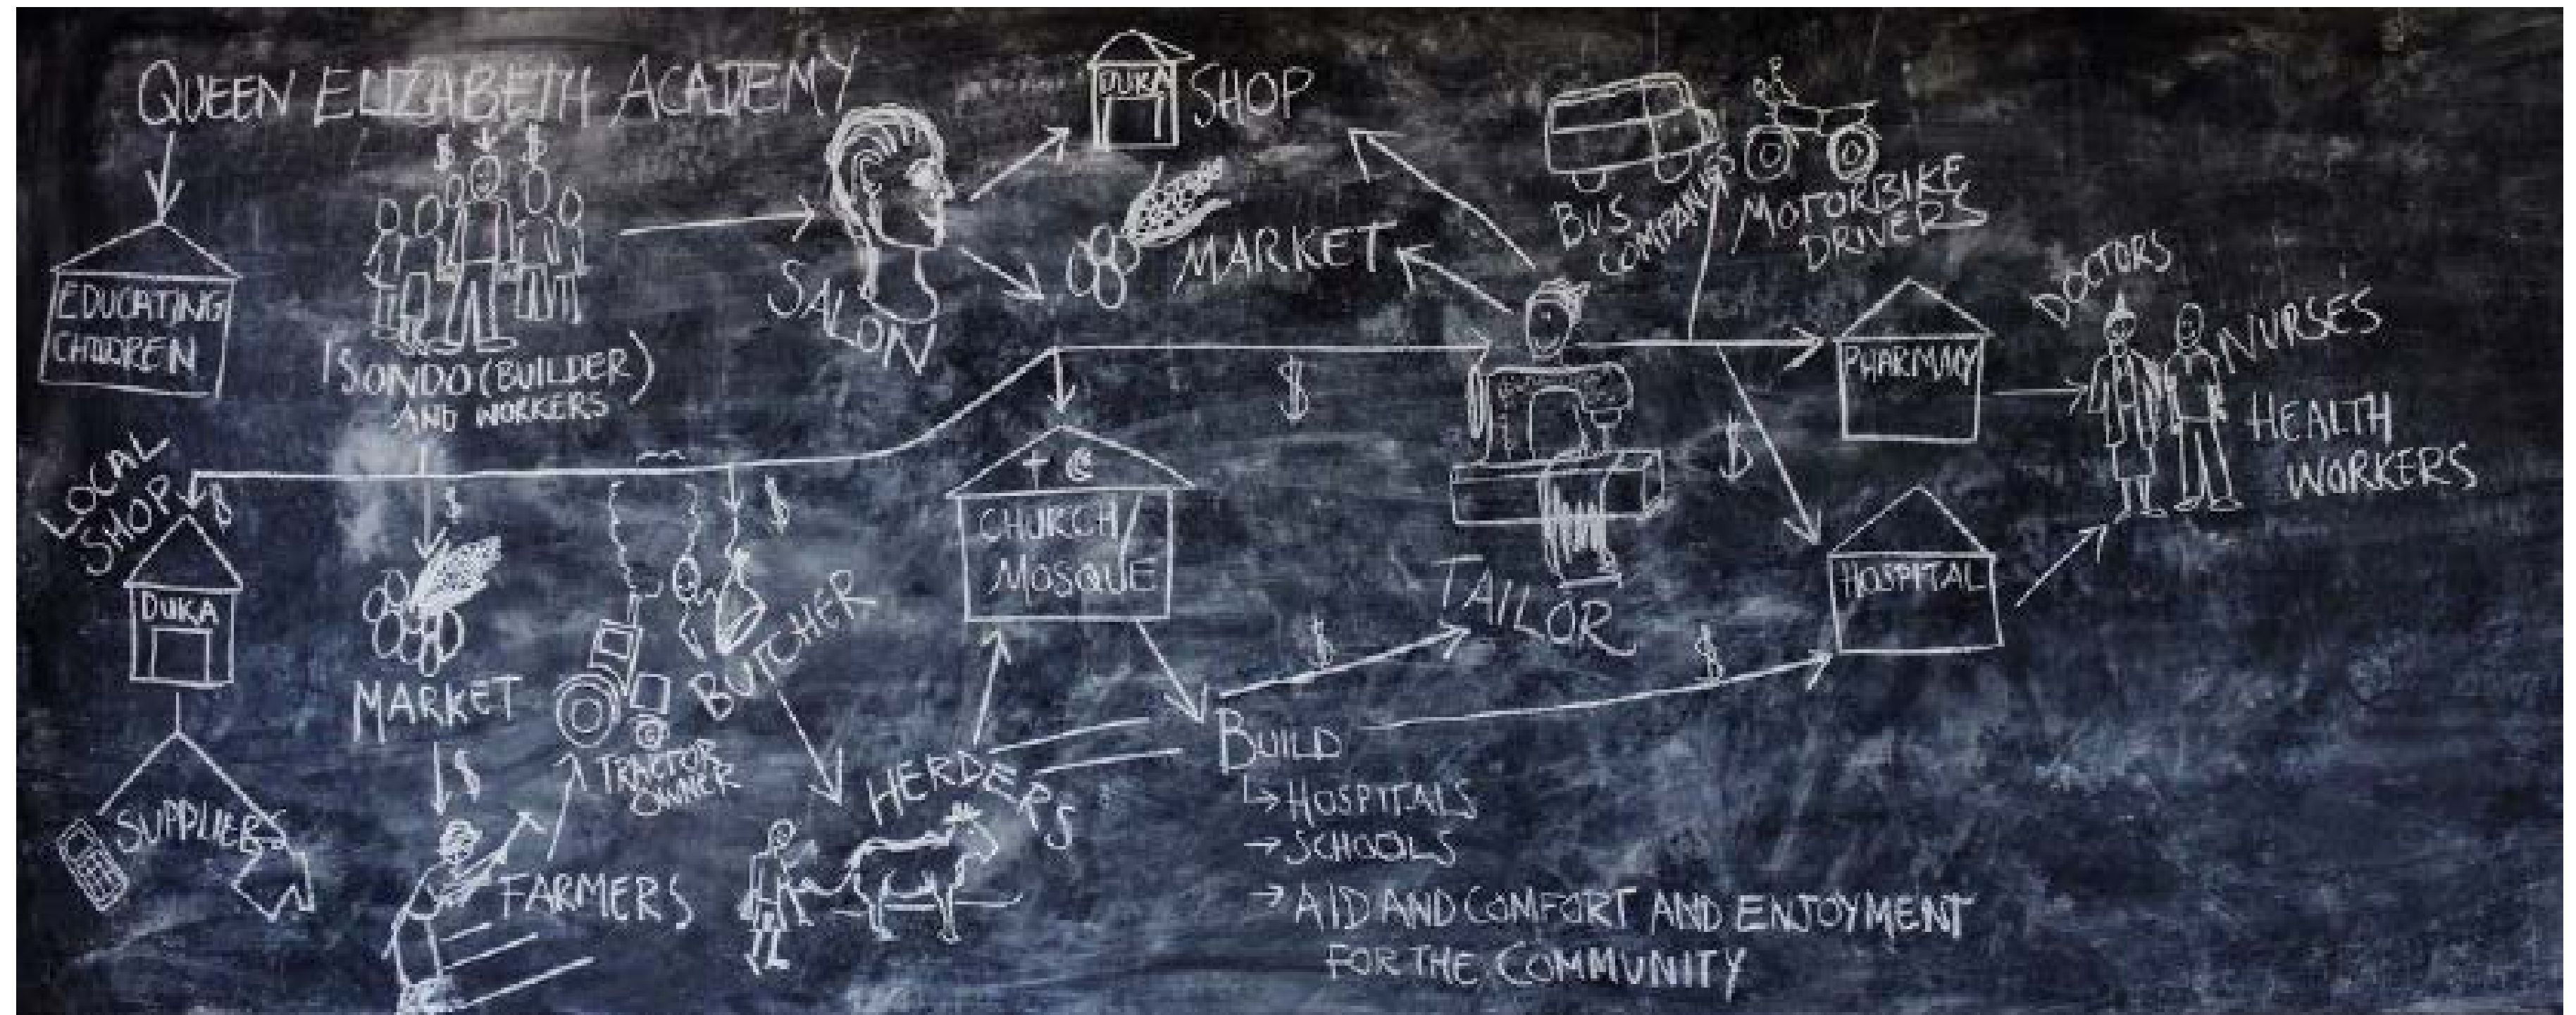 QUEEN ELIZABETH ACADEMY
DUKA
SHOP
EDUCATING
CHILDREN
$ $
ISONDO (BUILDER)
AND WORKERS
SALON
MARKET
BUS
COMPANIES
MOTORBIKE
DRIVERS
DOCTORS
NURSES
HEALTH
WORKERS
PHARMACY
LOCAL
SHOP
$
$
$
$
$
DUKA
MARKET
$
SUPPLIERS
FARMERS
TRACTOR
OWNER
BUTCHER
HERDERS
CHURCH/
MOSQUE
TAILOR
HOSPITAL
$
$
BUILD
HOSPITALS
SCHOOLS
AID AND COMFORT AND ENJOYMENT
FOR THE COMMUNITY